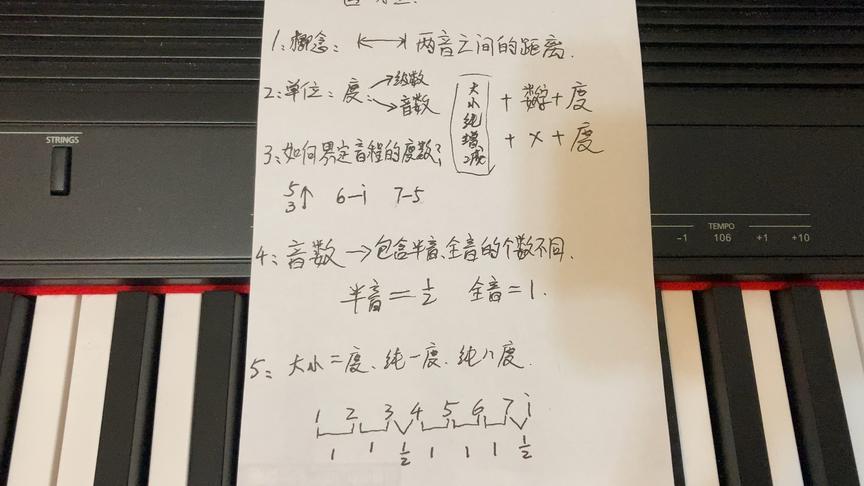 1、概念：⟷ 两音之间的距离.
2：单位：度：→级数
→音数
大小纯增减
+ 数字 + 度
+ X + 度
3：如何界定音程的度数？
5
3↑ 6—i 7—5
4：音数 → 包含半音、全音的个数不同.
半音 = 1/2 全音 = 1.
5：大小二度、纯一度、纯八度.
1 2 3 4 5 6 7 i
1 1 1/2 1 1 1 1/2
STRINGS
TEMPO
-1 106 +1 +10